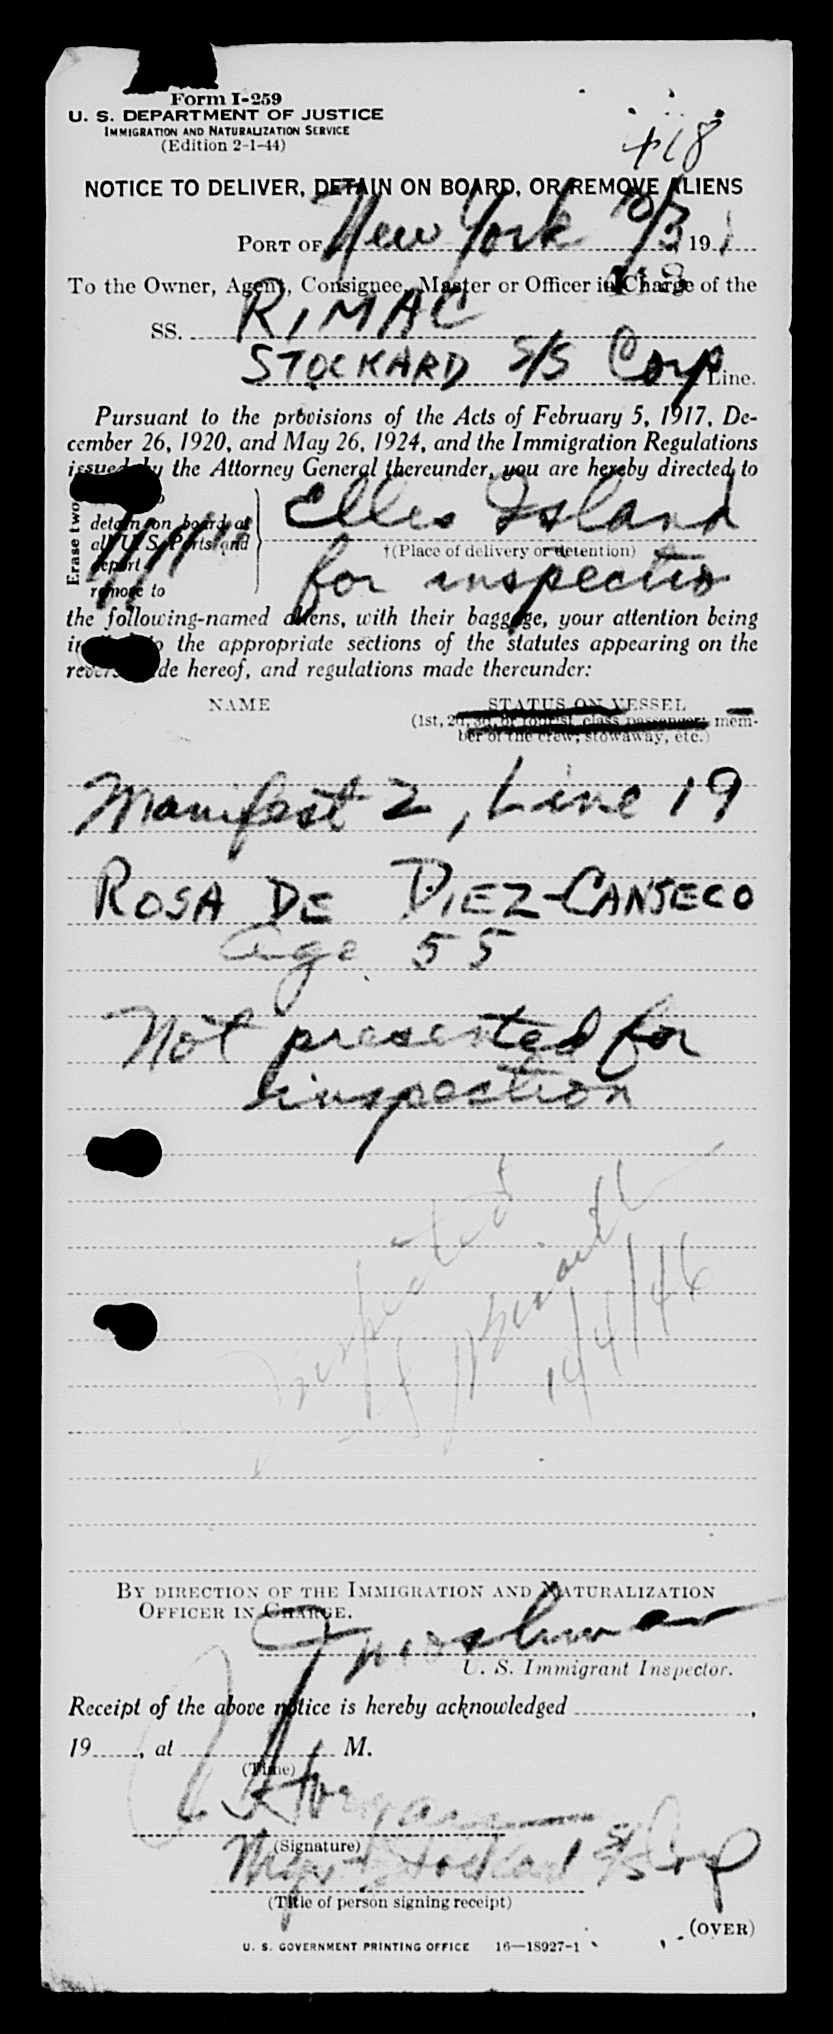 Form I-259
U. S. DEPARTMENT OF JUSTICE
IMMIGRATION AND NATURALIZATION SERVICE
(Edition 2-1-44)
418
NOTICE TO DELIVER, DETAIN ON BOARD, OR REMOVE ALIENS
PORT OF New York 10/3 19
To the Owner, Agent, Consignee, Master or Officer in Charge of the
SS. RIMAC
STOCKARD S/S Corp Line.
Pursuant to the provisions of the Acts of February 5, 1917, De-
cember 26, 1920, and May 26, 1924, and the Immigration Regulations
issued by the Attorney General thereunder, you are hereby directed to
Erase two
detain on board at
all U. S. Ports and
deport
remove to
Ellis Island
†(Place of delivery or detention)
for inspectio
the following-named aliens, with their baggage, your attention being
the appropriate sections of the statutes appearing on the
hereof, and regulations made thereunder:
NAME STATUS ON VESSEL
(1st, 2d, 3d, or tourist class passenger; mem-
ber of the crew; stowaway, etc.)
Manifest 2, Line 19
ROSA DE DIEZ-CANSECO
age 55
Not presented for
inspection
Inspected
10/4/46
BY DIRECTION OF THE IMMIGRATION AND NATURALIZATION
OFFICER IN CHARGE.
U. S. Immigrant Inspector.
Receipt of the above notice is hereby acknowledged ,
19 , at M.
(Time)
Horgan
(Signature)
Mgr Stockard S/S Corp
(Title of person signing receipt)
(OVER)
U. S. GOVERNMENT PRINTING OFFICE 16—18927-1